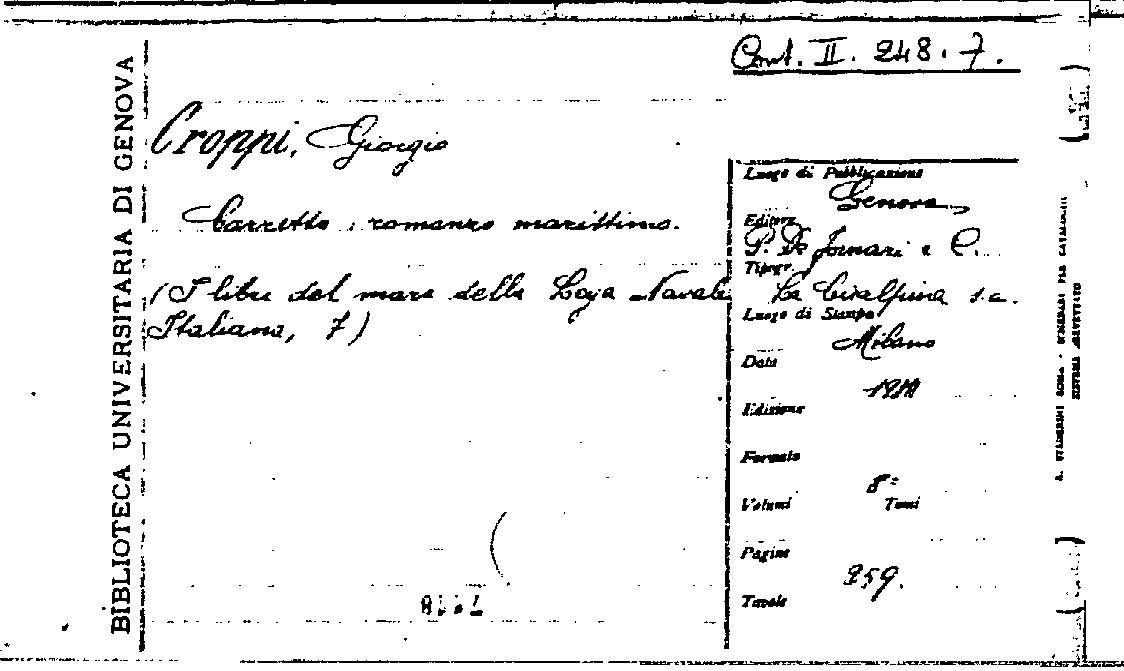 BIBLIOTECA UNIVERSITARIA DI GENOVA
Cont. II. 248. 7.
Croppi, Giorgio
Barretto, romanzo marittimo.
(I libri del mare della Lega Navale
Italiana, 7)
Luogo di Pubblicazione
Genova
Editore
P. De Fornari e C.
Tipogr.
La Cisalpina s.a.
Luogo di Stampa
Milano
Data
Edizione
Formato
8º
Volumi Tomi
Pagine
259.
Tavole